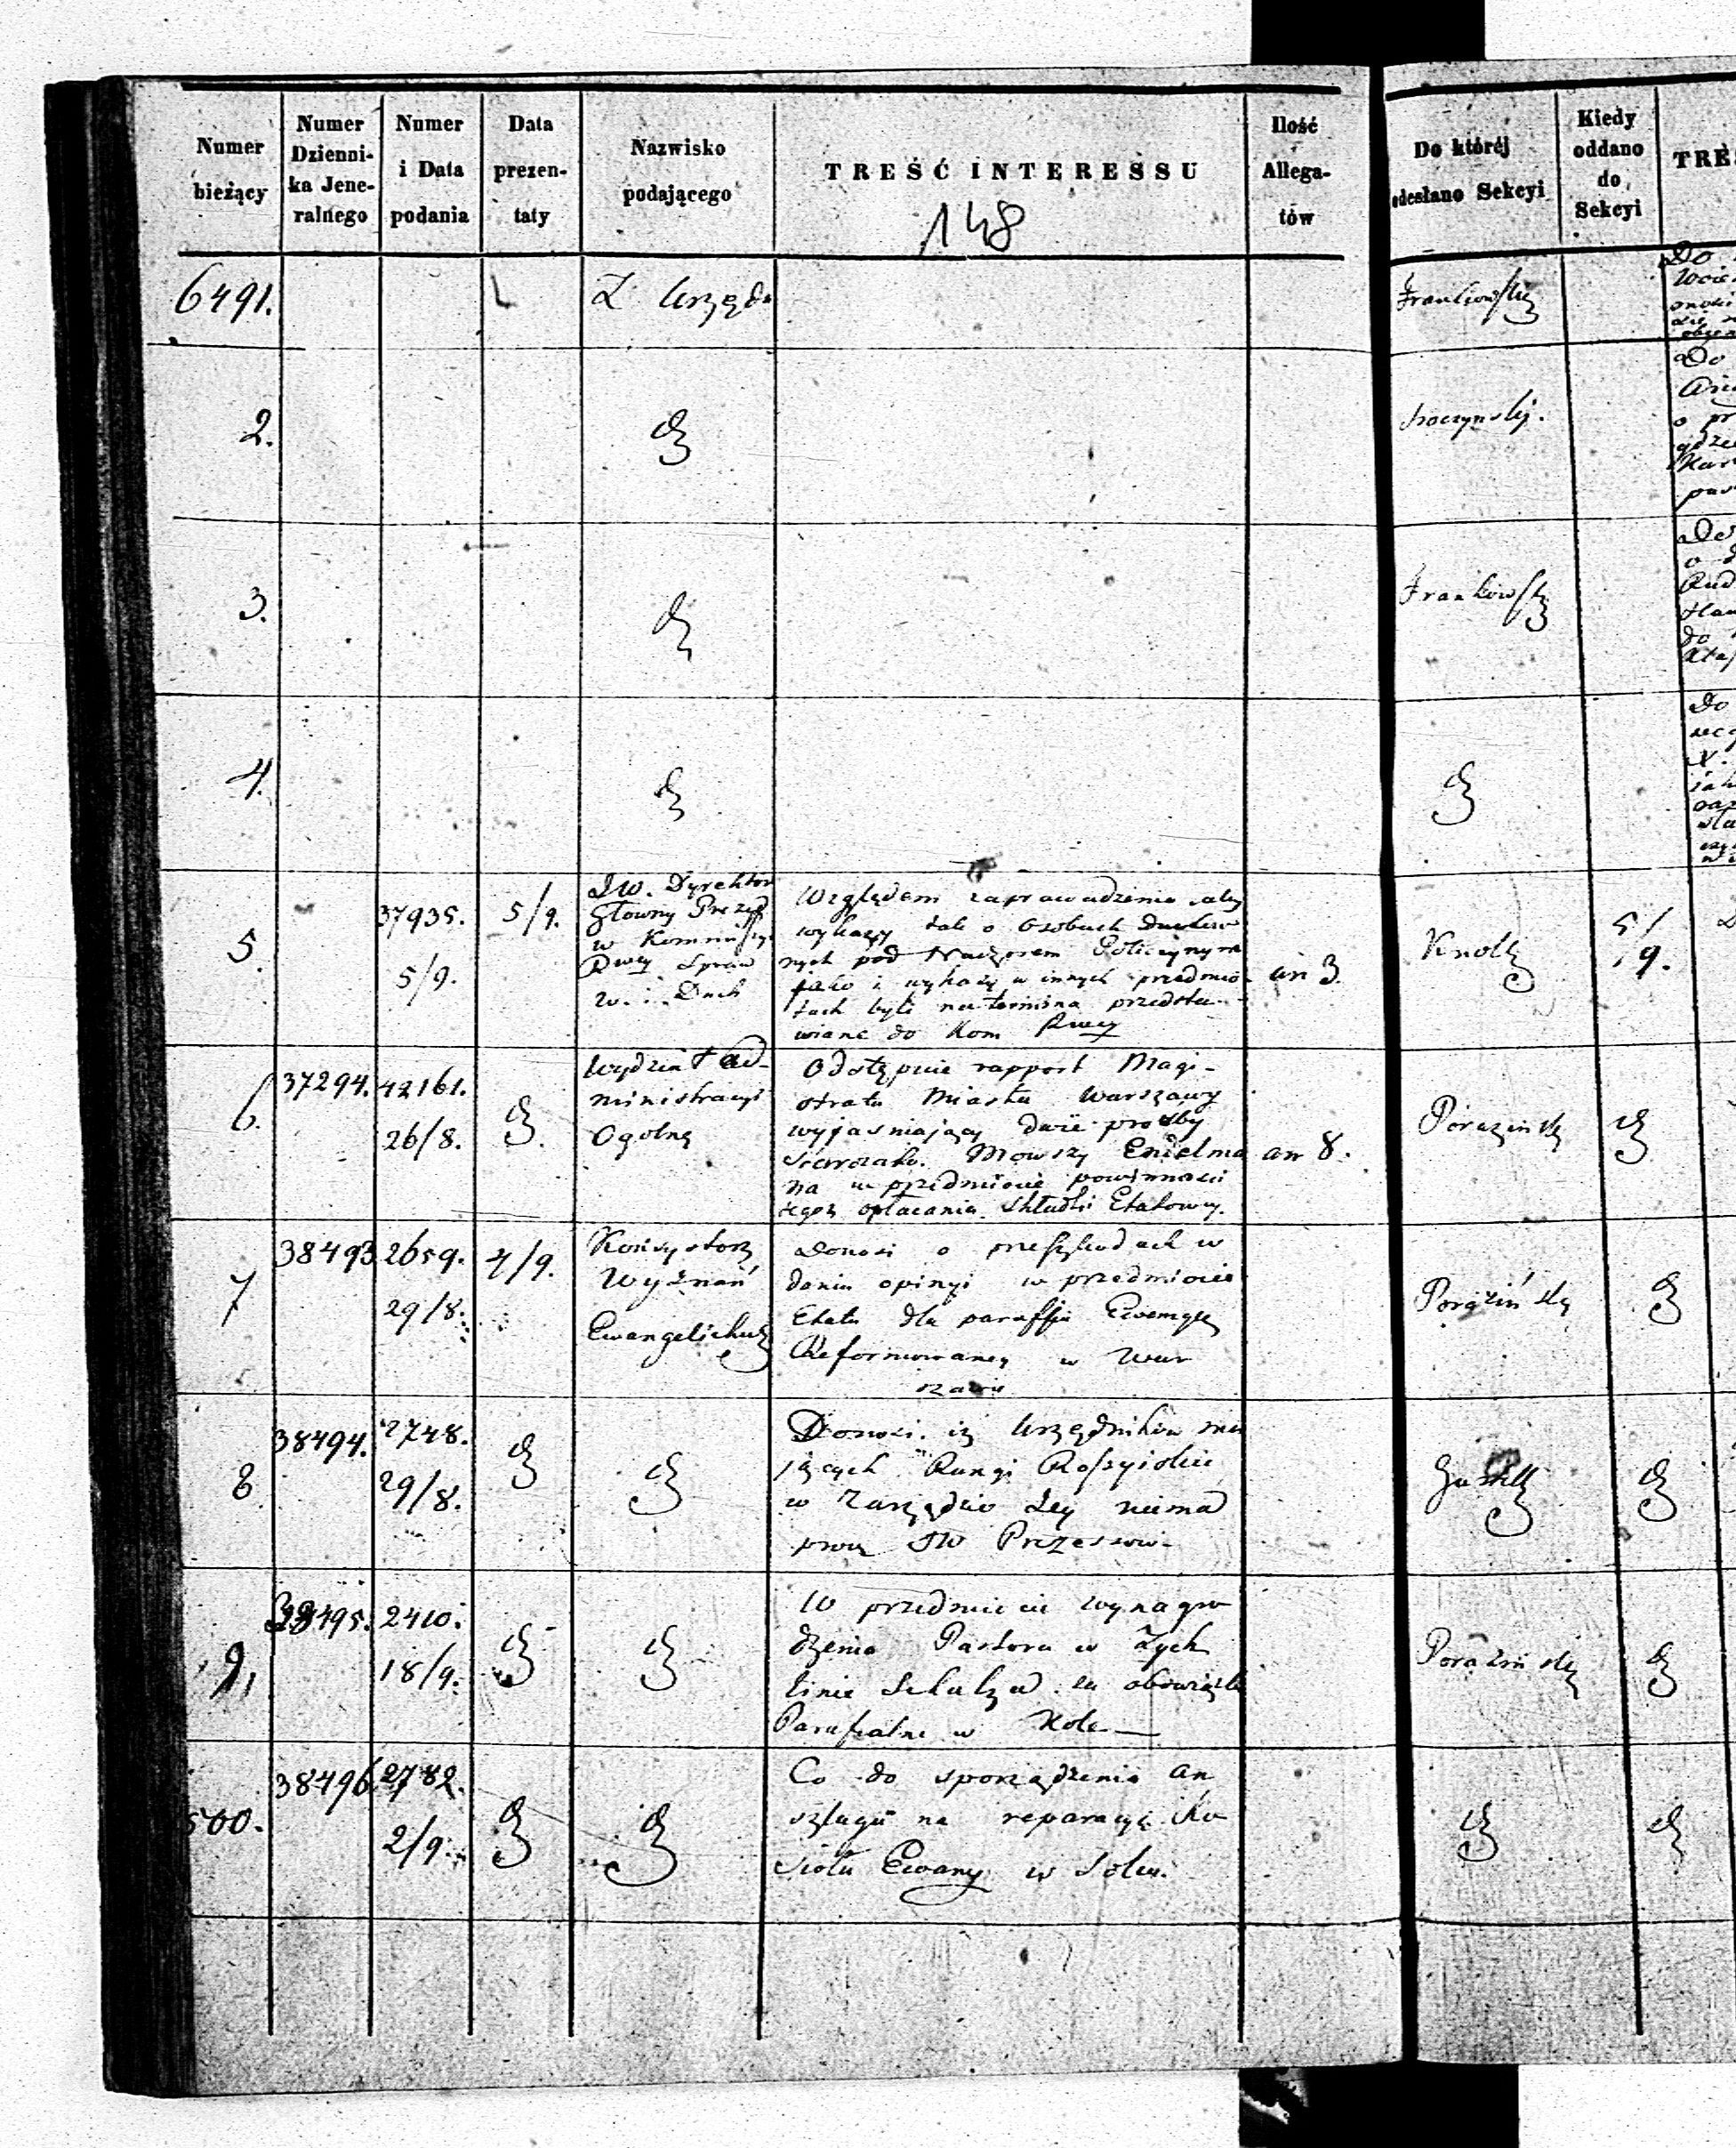 Numer bieżący
Numer Dzienni-ka Jene-ralnego
Numer i Data podania
Data prezen-taty
Nazwisko podającego
TREŚĆ INTERESSU
148
Ilość Allega-tów
Do któréj odesłano Sekcyi
Kiedy oddano do Sekcyi
TRE
6491.
Z Urzędu
Frankowski
2.
dto
3.
dto
Frankowski
4.
dto
dto
5.
37935.
5/9.
5/9.
JW. Dyrektor
Główny Prezyd
w Kommissyi
Rwey Spraw
w. i. Duch
Względem zaprowadzenia aby
wykazy tak o Osobach Duchow
nych pod Nadzorem Policyjnym
jako i wykazy w innych przedmio-
tach były na termina przedsta-
wiane do Kom Rwey
an 3.
Knoll
5/9.
6.
37294.
42161.
26/8.
dto
Wydział Ad-
ministracyi
Ogólney
Odstępuie rapport Magi-
stratu Miasta Warszawy
wyjasniający dwie prozby
Starozak. Mowszy Endelma
na w przedmiocie powinnosci
tegoz opłacania składki Etatowey.
an 8.
Poraziński
dto
7
38493
2659.
29/8.
4/9.
Konsystorz
Wyznań
Ewangelickich
Donosi o przeszkodach w
daniu opinyi w przedmiocie
Etatu dla paraffii Ewangey
Reformowaney w War
szawie
Poraziński
dto
8
38494.
2748.
29/8.
dto
dto
Donosi iz Urzędników ma
jących Rangi Rossyiskie
w Zarządzie Jey niema
prócz JW Prezesowi-
dto
9.
38495.
2410.
18/9.
dto
dto
W przedmiocie wynagro
dzenia Pastora w Zych
linie Schulza za obowiązki
Parafialne w Kole
Poraziński
dto
500.
38496
2782.
2/9.
dto
dto
Co do sporządzenia an
szlagu na reparacyę Ko
sciołu Ewany w Solcu.
dto
dto